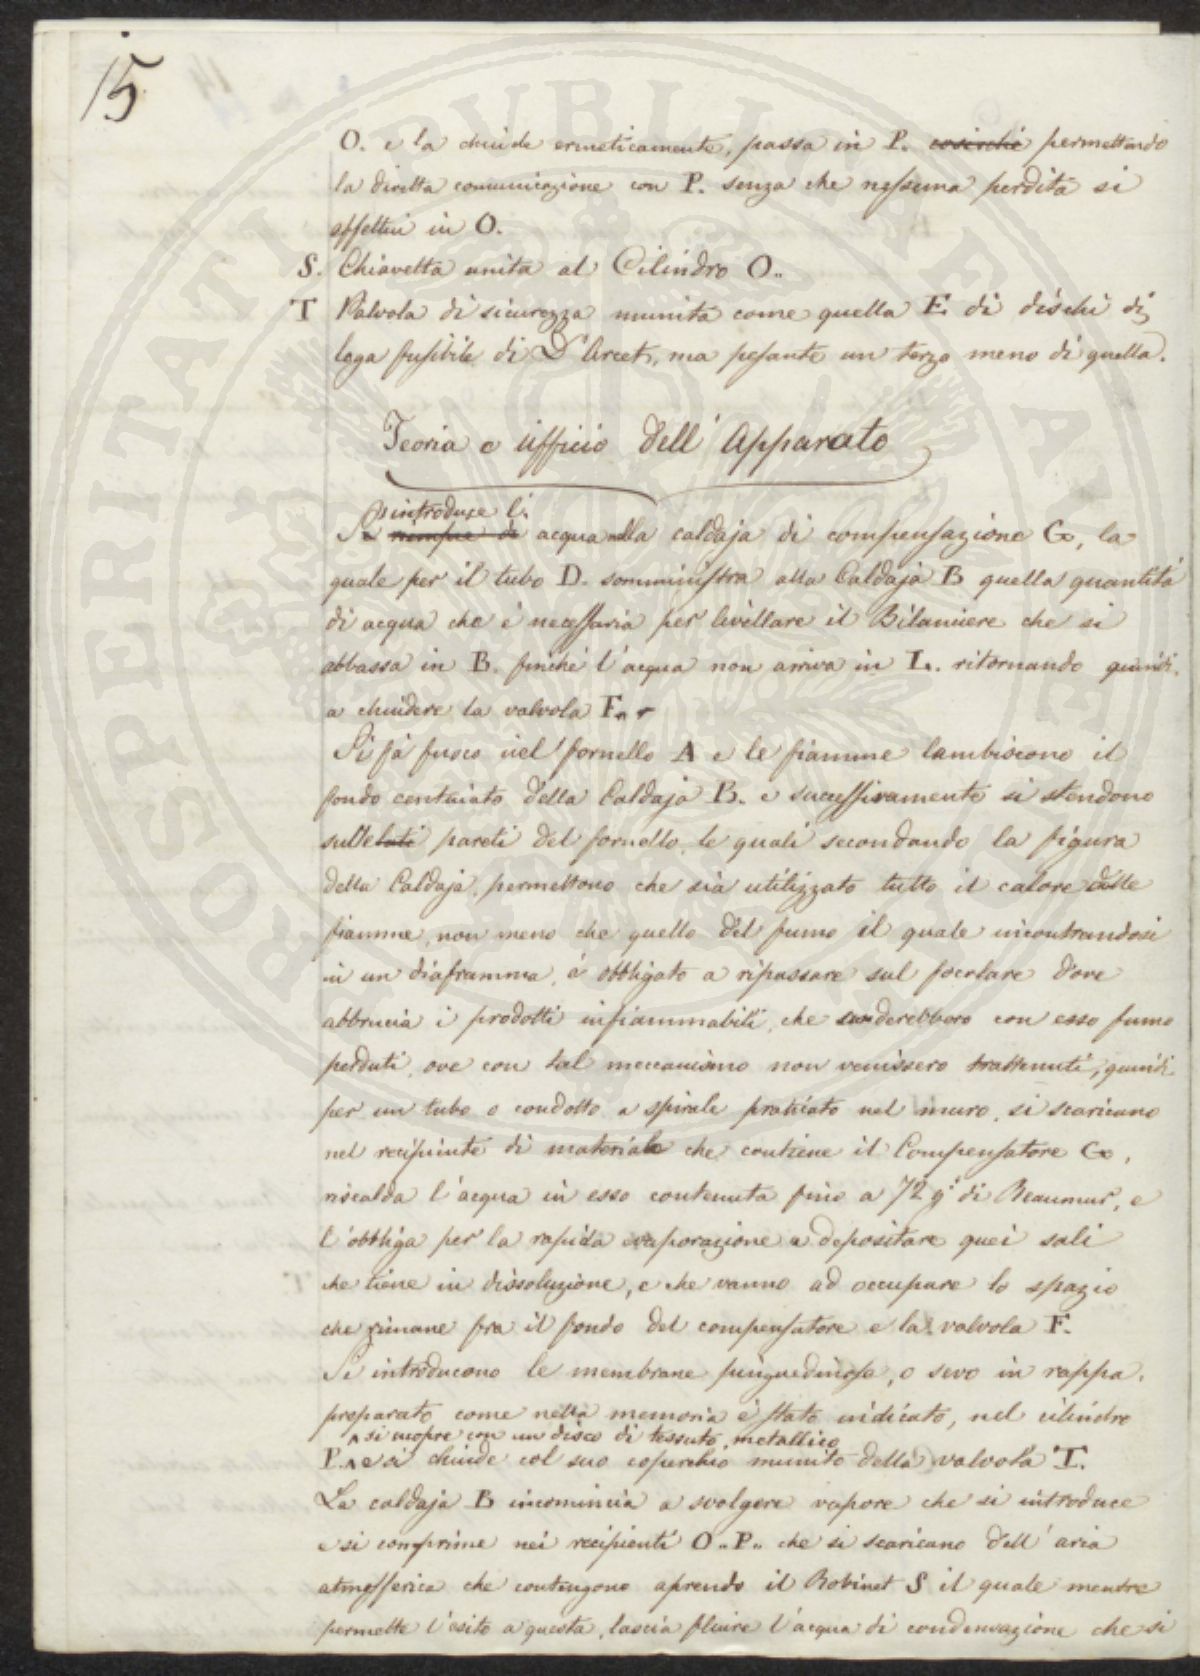 15
O. e la chiude ermeticamente, passa in P. cosicchè permettendo
la diretta comunicazione con P. senza che nessuna perdita si
effettui in O.
S. Chiavetta unita al Cilindro O..
T Valvola di sicurezza munita come quella E. di dischi di
lega fusibile di D'Arcet, ma pesante un terzo meno di quella.
Teoria e Ufficio dell'Apparato
introduce l'
Si riempie di acqua nella caldaja di compensazione G, la
quale per il tubo D. somministra alla Caldaja B quella quantità
di acqua che è necessaria per livellare il Bilanciere che si
abbassa in B. finchè l'acqua non arriva in L. ritornando quindi
a chiudere la valvola F.
Si fà fuoco nel fornello A e le fiamme lambiscono il
fondo centinato della Caldaja B. e successivamente si stendono
sulle lati pareti del fornello, le quali secondando la figura
della Caldaja, permettono che sia utilizzato tutto il calore delle
fiamme, non meno che quello del fumo il quale incontrandosi
in un diaframma, è obbligato a ripassare sul focolare dove
abbrucia i prodotti infiammabili, che anderebbero con esso fumo
perduti, ove con tal meccanismo non venissero trattenuti, quindi
per un tubo o condotto a spirale praticato nel muro, si scaricano
nel recipiente di materiale che contiene il Compensatore G,
riscalda l'acqua in esso contenuta fino a 72 g.i di Reaumur, e
l'obbliga per la rapida evaporazione a depositare quei sali
che tiene in dissoluzione, e che vanno ad occupare lo spazio
che rimane fra il fondo del compensatore e la valvola F.
Si introducono le membrane pinguedinose, o sevo in rappa,
preparato come nella memoria è stato indicato, nel cilindro
si cuopre con un disco di tessuto metallico
P. e si chiude col suo coperchio munito della valvola T.
La caldaja B incomincia a svolgere vapore che si introduce
e si comprime nei recipienti O.. P.. che si scaricano dell'aria
atmosferica che contengono aprendo il Robinet S il quale mentre
permette l'esito a questa, lascia fluire l'acqua di condensazione che si